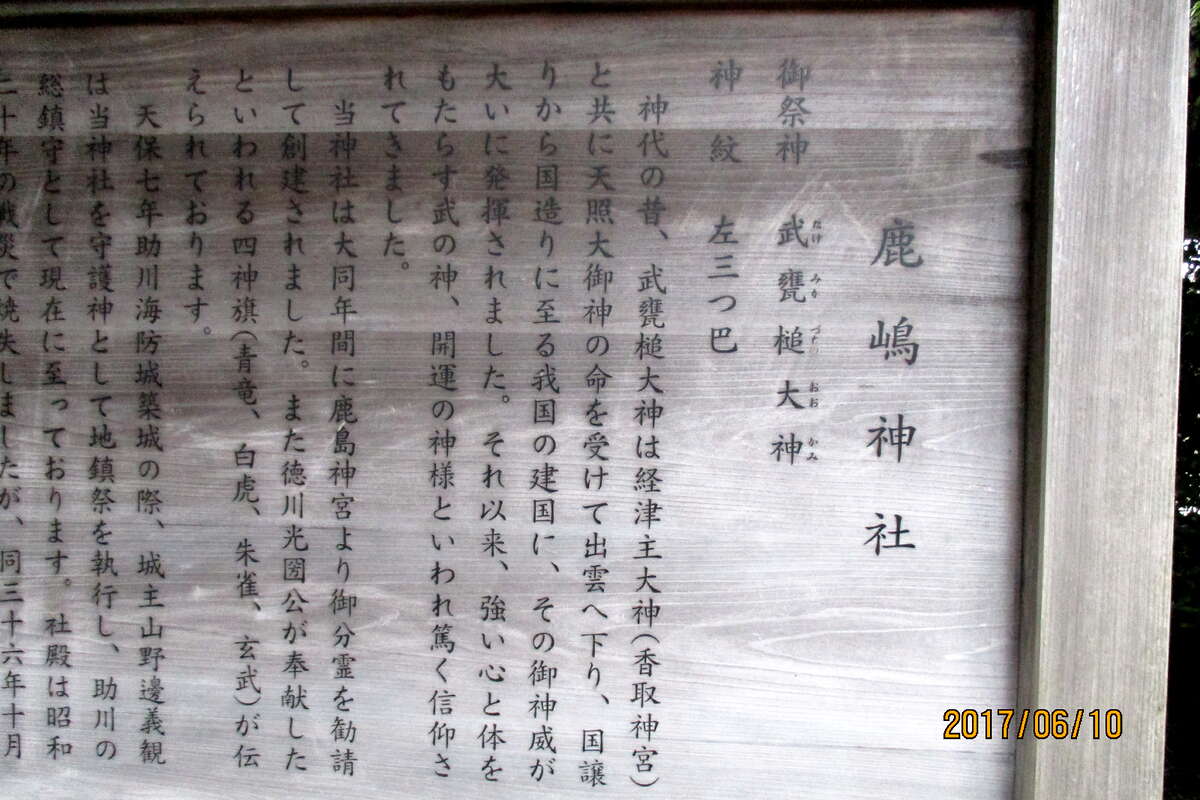 鹿嶋神社
御祭神 武甕槌大神
たけ みか づちの おお かみ
神紋 左三つ巴
神代の昔、武甕槌大神は経津主大神(香取神宮)
と共に天照大御神の命を受けて出雲へ下り、国譲
りから国造りに至る我国の建国に、その御神威が
大いに発揮されました。それ以来、強い心と体を
もたらす武の神、開運の神様といわれ篤く信仰さ
れてきました。
当神社は大同年間に鹿島神宮より御分霊を勧請
して創建されました。また徳川光圀公が奉献した
といわれる四神旗(青竜、白虎、朱雀、玄武)が伝
えられております。
天保七年助川海防城築城の際、城主山野邊義観
は当神社を守護神として地鎮祭を執行し、助川の
総鎮守として現在に至っております。社殿は昭和
二十年の戦災で焼失しましたが、同三十六年十月
2017/06/10